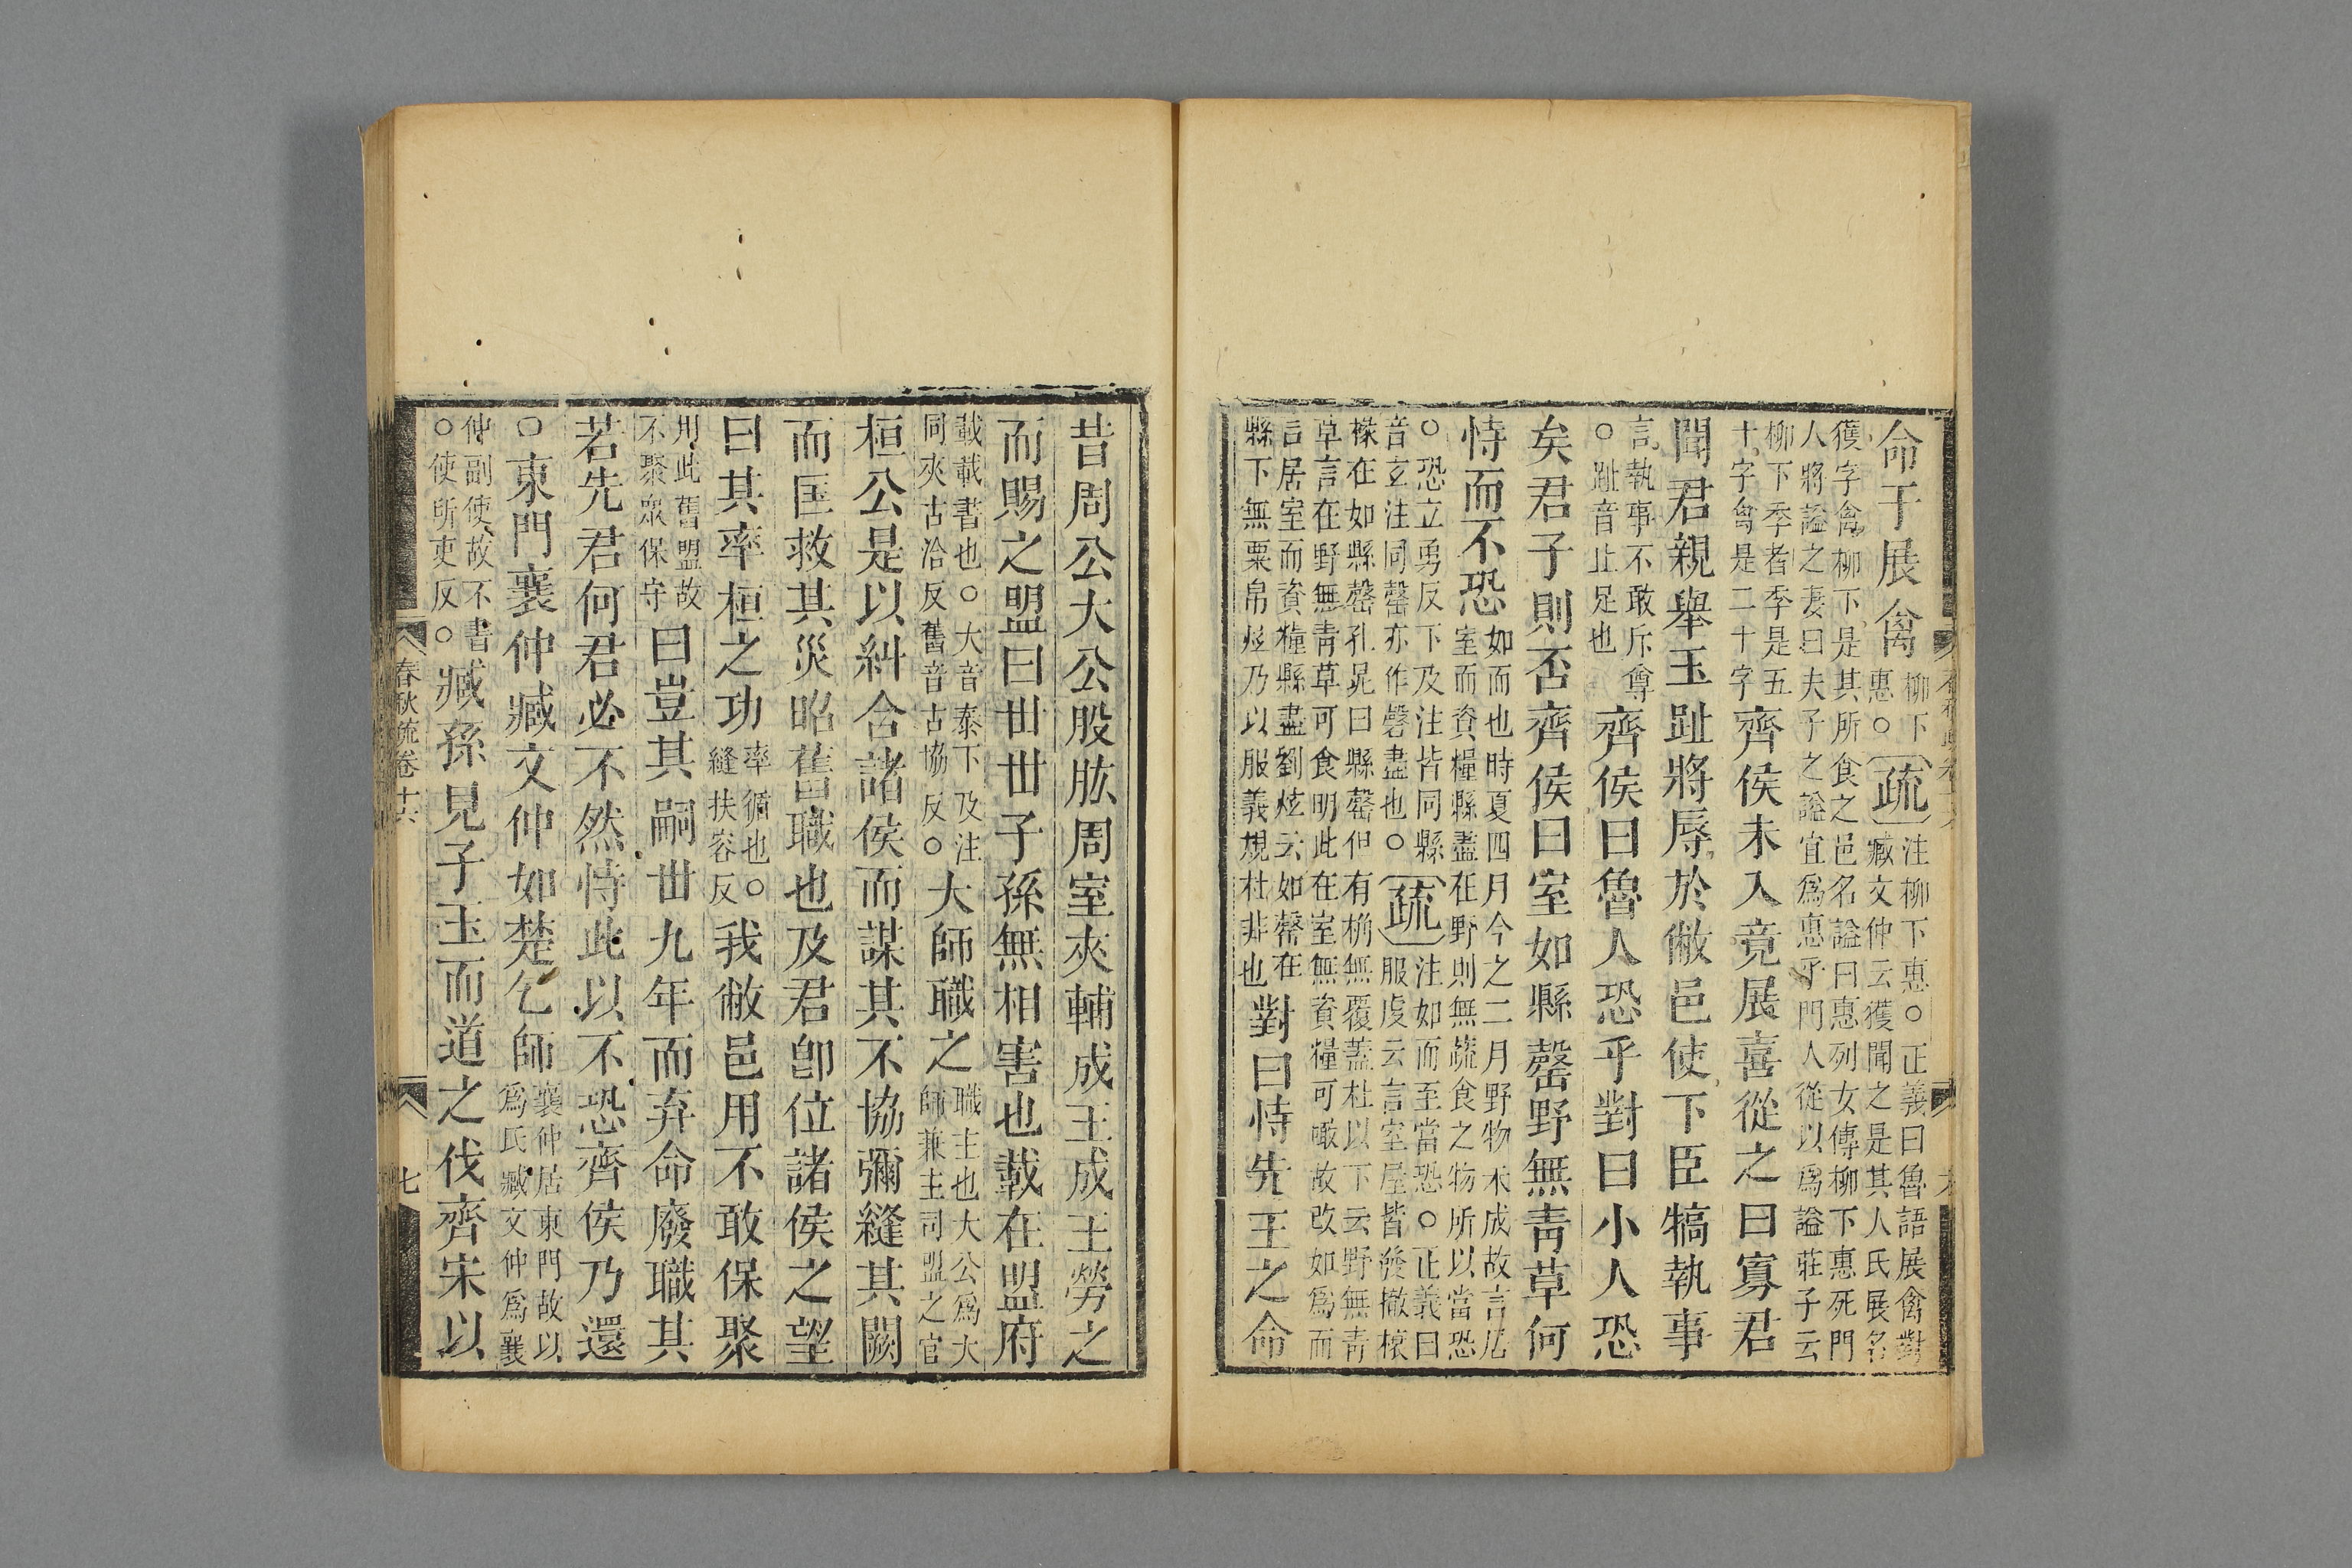 命于展禽柳下惠○疏注柳下惠○正義曰魯語展禽對臧文仲云獲聞之是其人氏展名
獲字禽柳下是其所食之邑名謚曰惠列女傳柳下惠死門人將謚之妻曰夫子之謚宜爲惠乎門人從以爲謚莊子云
柳下季者季是五十字禽是二十字齊侯未入竟展喜從之曰寡君
聞君親舉玉趾將辱於敝邑使下臣犒執事
言執事不敢斥尊○趾音止足也齊侯曰魯人恐乎對曰小人恐
矣君子則否齊侯曰室如縣罄野無靑草何
恃而不恐如而也時夏四月今之二月野物未成故言居室而資糧縣盡在野則無蔬食之物所以當恐
○恐立勇反下及注皆同縣音玄注同罄亦作磬盡也○疏注如而至當恐○正義曰服虔云言室屋皆發撤榱
榱在如縣罄孔晁曰縣罄但有桷無覆蓋杜以下云野無靑草言在野無靑草可食明此在室無資糧可噉故改如爲而
言居室而資糧縣盡劉炫云如罄在縣下無粟帛炫乃以服義規杜非也對曰恃先王之命
昔周公大公股肱周室夾輔成王成王勞之
而賜之盟曰丗丗子孫無相害也載在盟府
載載書也○大音泰下及注同夾古洽反舊音古協反○大師職之職主也大公爲大師兼主司盟之官
桓公是以糾合諸侯而謀其不協彌縫其闕
而匡救其災昭舊職也及君卽位諸侯之望
曰其率桓之功率循也○縫扶容反我敝邑用不敢保聚
用此舊盟故不聚衆保守曰豈其嗣丗九年而弃命廢職其
若先君何君必不然恃此以不恐齊侯乃還
○東門襄仲臧文仲如楚乞師襄仲居東門故以爲氏臧文仲爲襄
仲副使故不書○使所吏反○臧孫見子玉而道之伐齊宋以
春秋疏卷十六
七